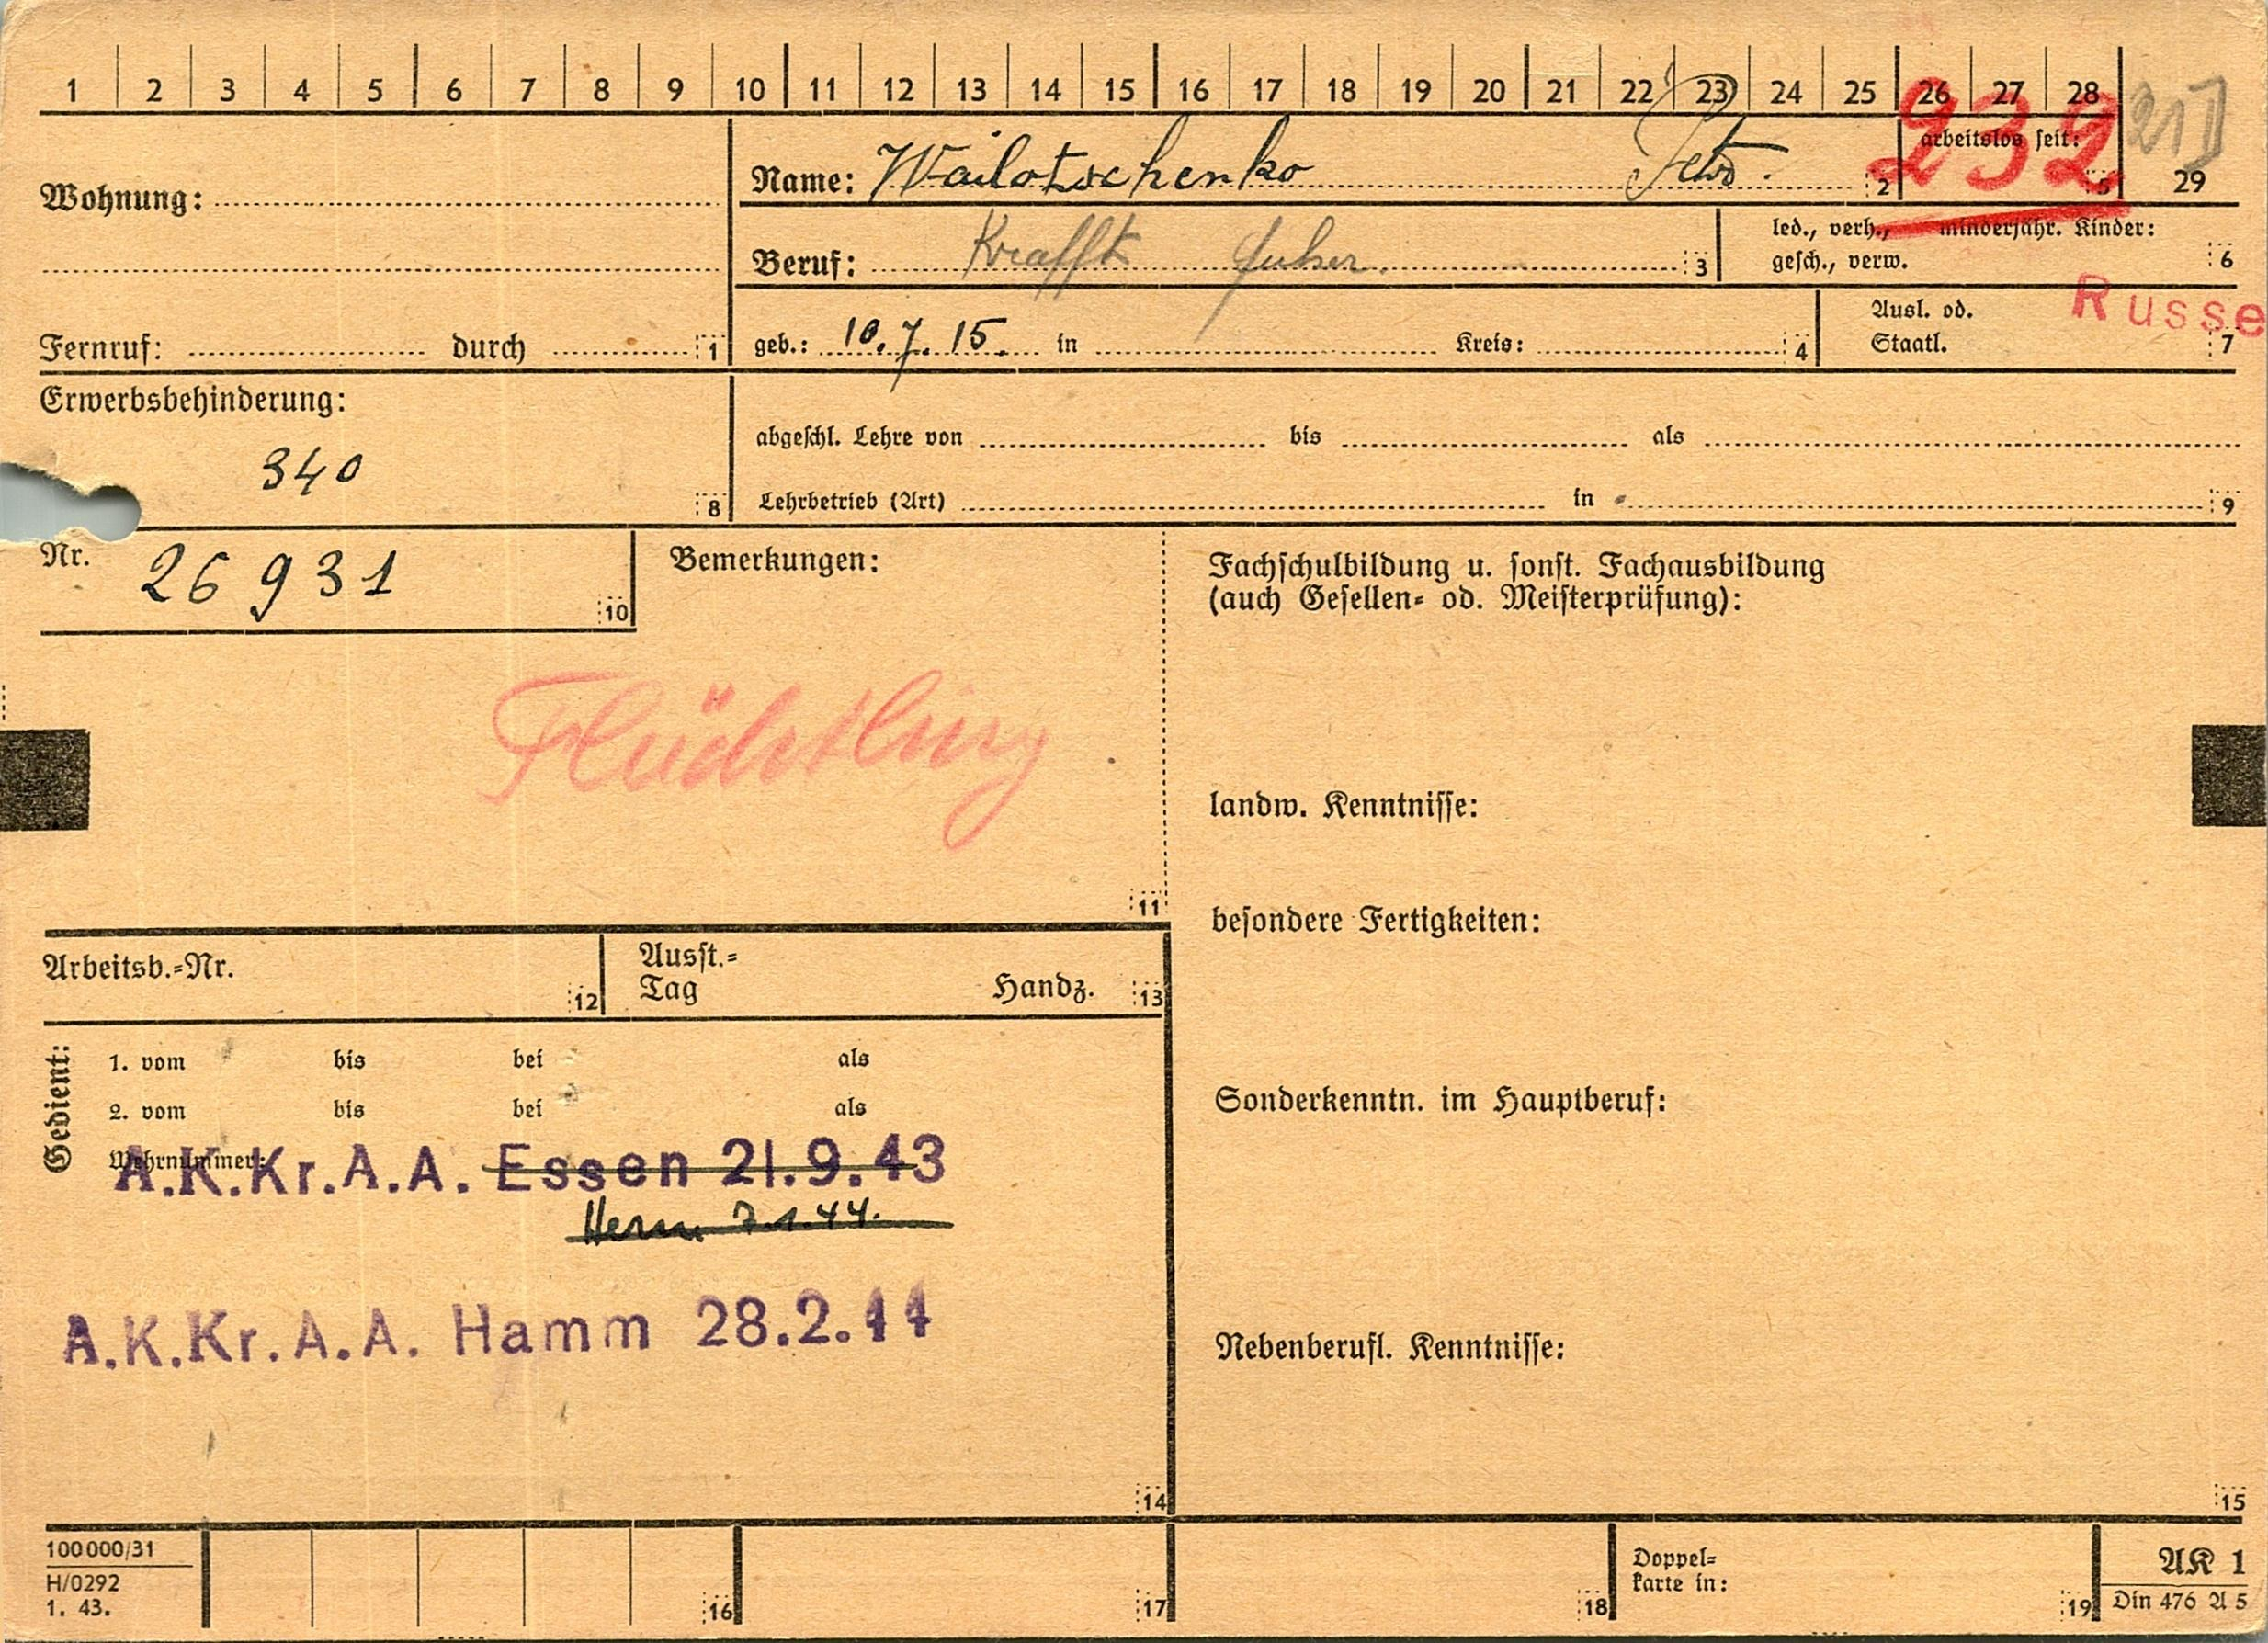 1 2 3 4 5 6 7 8 9 10 11 12 13 14 15 16 17 18 19 20 21 22 23 24 25 26 27 28
232
29
Wohnung:
Name: Wailotschenko Petro. 2
arbeitslos seit: 5
Beruf: Krafft fuher. 3
led., verh., minderjähr. Kinder:
gesch., verw. 6
Fernruf: durch 1
geb.: 10.7.15. in Kreis: 4
Ausl. od.
Staatl. 7
Russe
Erwerbsbehinderung:
340
8
abgeschl. Lehre von bis als
Lehrbetrieb (Art) in 9
Nr. 26931 10
Bemerkungen:
Flüchtling
11
Fachschulbildung u. sonst. Fachausbildung
(auch Gesellen- od. Meisterprüfung):
landw. Kenntnisse:
besondere Fertigkeiten:
Sonderkenntn. im Hauptberuf:
Nebenberufl. Kenntnisse:
15
Arbeitsb.-Nr. 12
Ausst.-
Tag Handz. 13
Gedient:
1. vom bis bei als
2. vom bis bei als
Wehrnummer:
A.K.Kr.A.A. Essen 21.9.43
7.1.44.
A.K.Kr.A.A. Hamm 28.2.44
14
100000/31
H/0292
1. 43.
16
17
18
Doppel-
karte in:
19
AK 1
Din 476 A 5